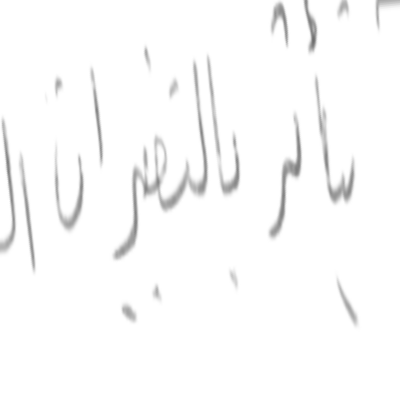 يتأثر بالتغيرات